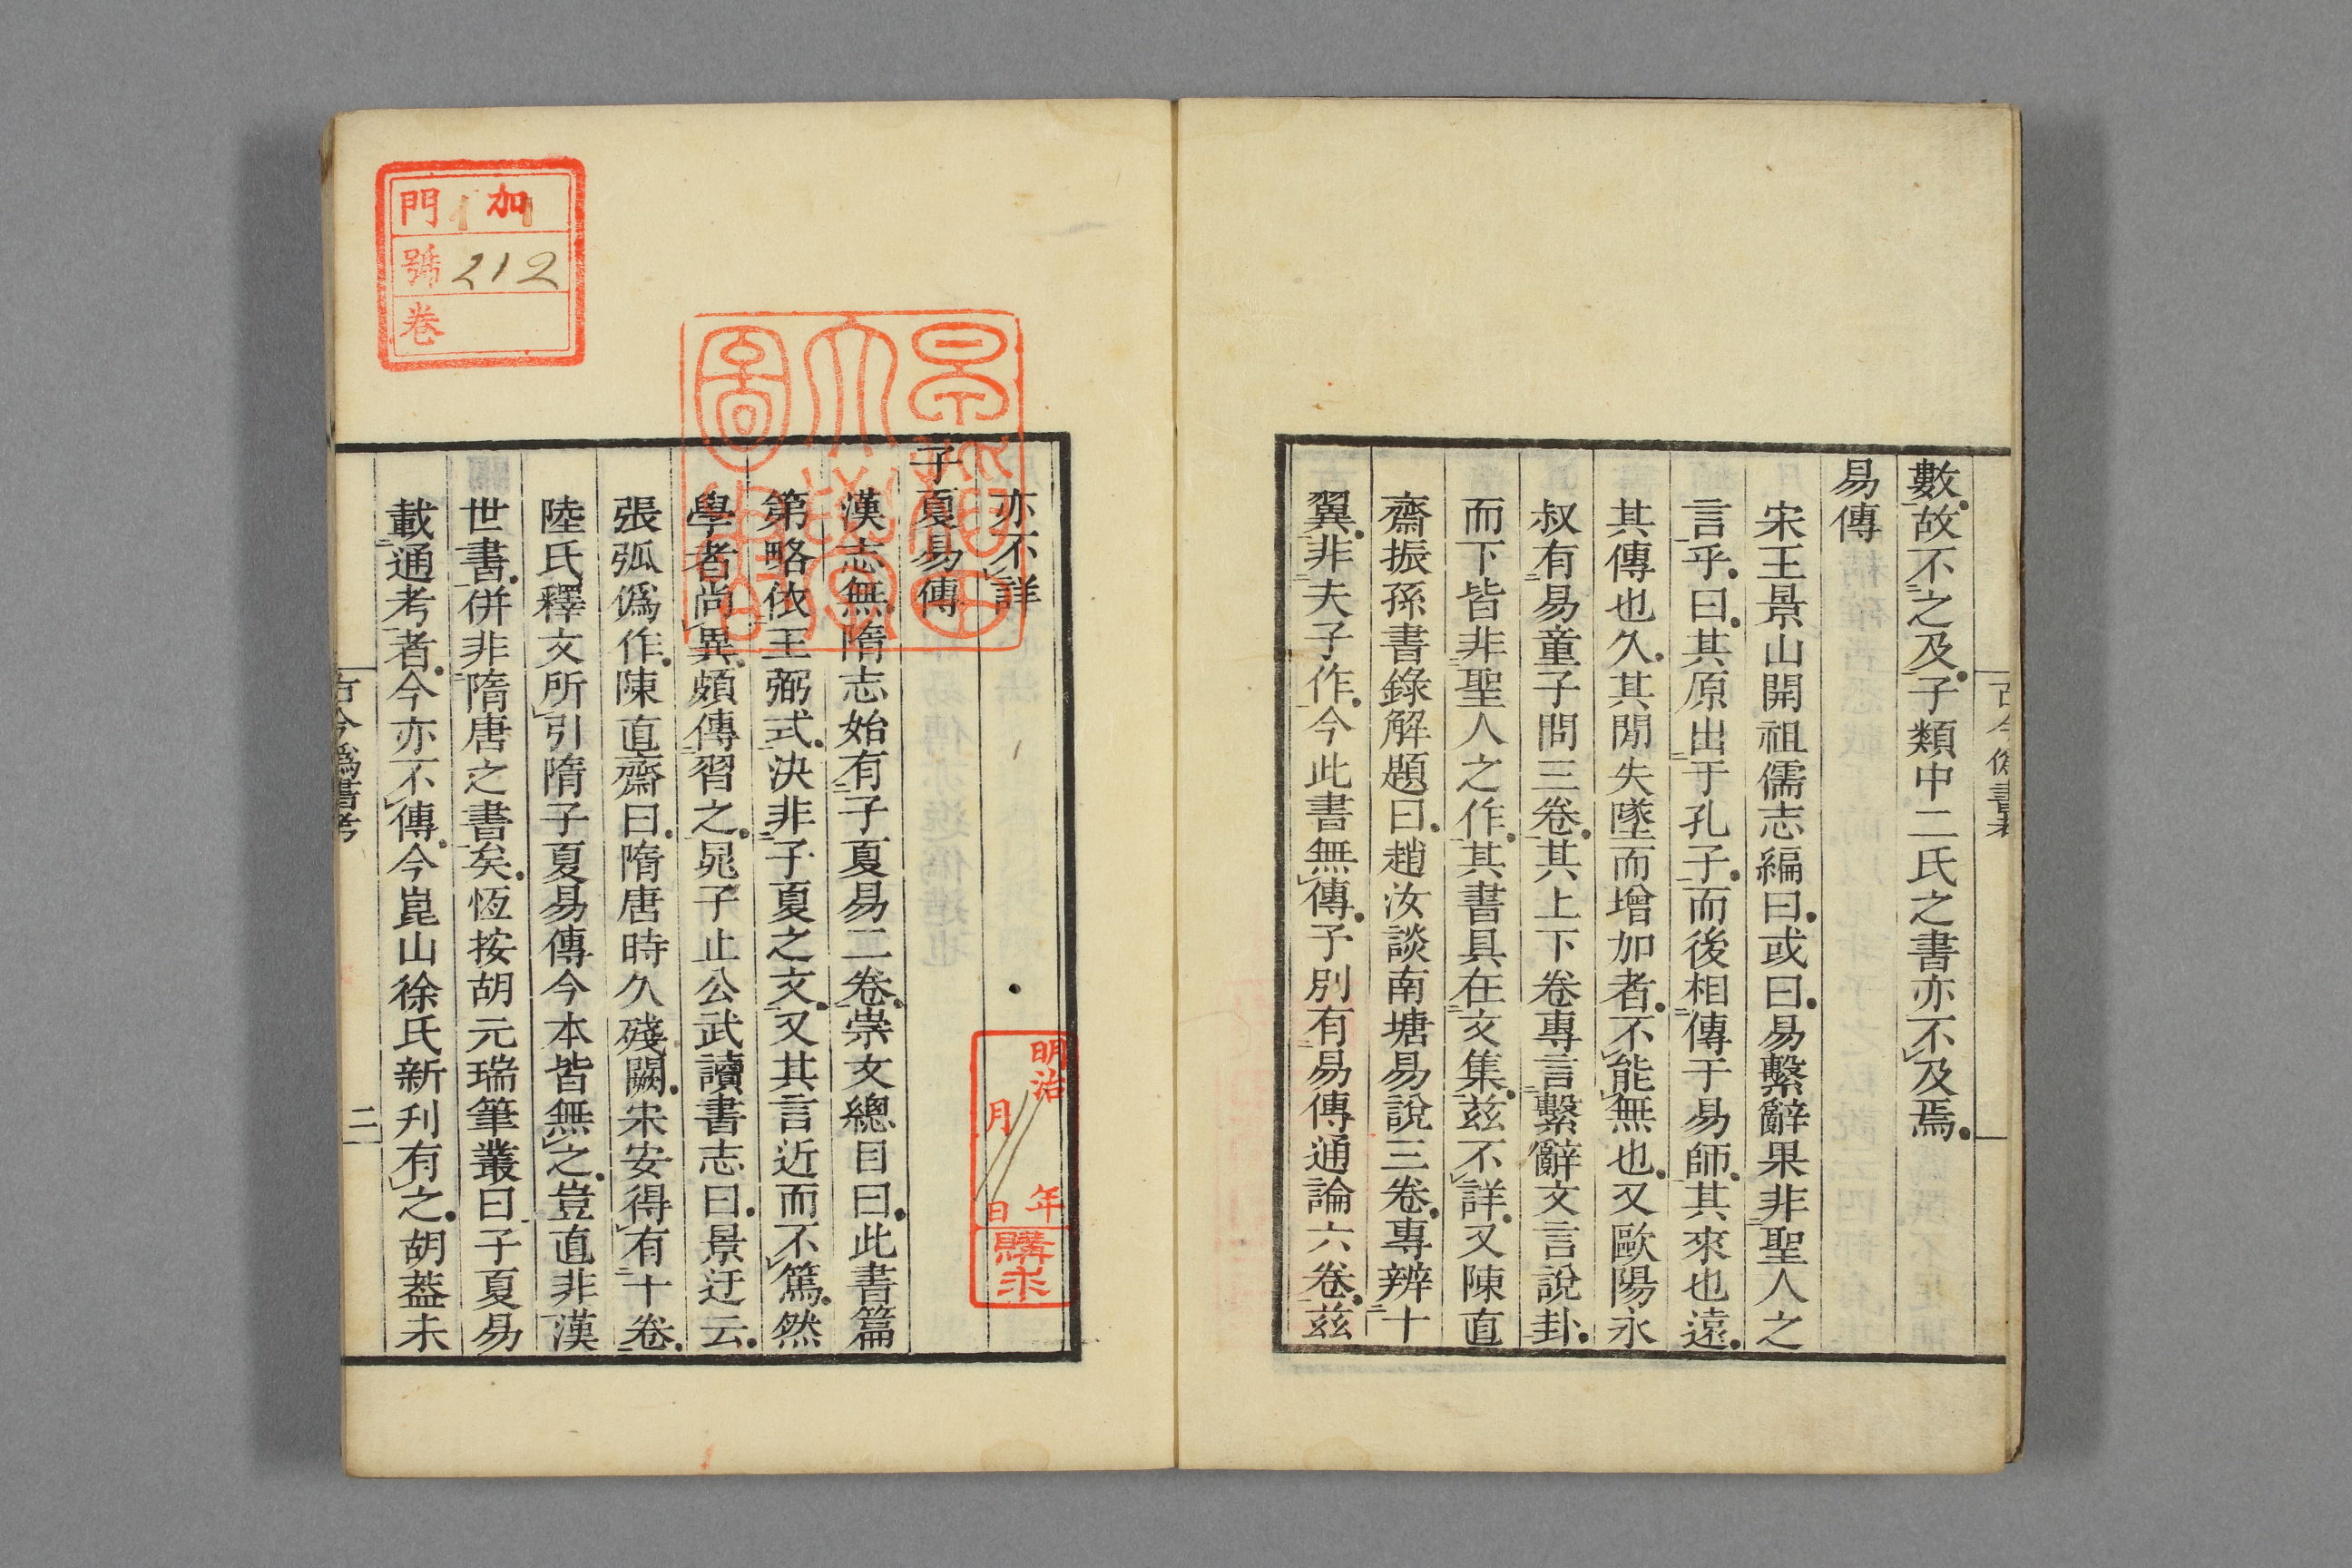 古今僞書考
數故不之及子類中二氏之書亦不及焉
易傳
宋王景山開祖儒志編曰或曰易繫辭果非聖人之
言乎曰其原出于孔子而後相傳于易師其來也遠
其傳也久其閒失墜而增加者不能無也又歐陽永
叔有易童子問三卷其上下卷專言繫辭文言說卦
而下皆非聖人之作其書具在文集茲不詳又陳直
齋振孫書錄解題曰趙汝談南塘易說三卷專辨十
翼非夫子作今此書無傳予別有易傳通論六卷茲
亦不詳
子夏易傳
漢志無隋志始有子夏易二卷崇文總目曰此書篇
第略依王弼式決非子夏之文又其言近而不篤然
學者尚異頗傳習之晁子止公武讀書志曰景迂云
張弧僞作陳直齋曰隋唐時久殘闕宋安得有十卷
陸氏釋文所引隋子夏易傳今本皆無之豈直非漢
世書併非隋唐之書矣恆按胡元瑞筆叢曰子夏易
載通考者今亦不傳今崑山徐氏新刊有之胡葢未
古今僞書考
二
加
門
號 212
卷
明治
年
月
日
購求